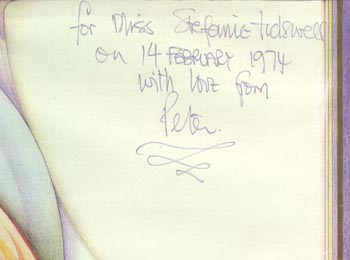 for Miss Stefanie Tidswell
on 14 FEBRUARY 1974
with love from
Peter.